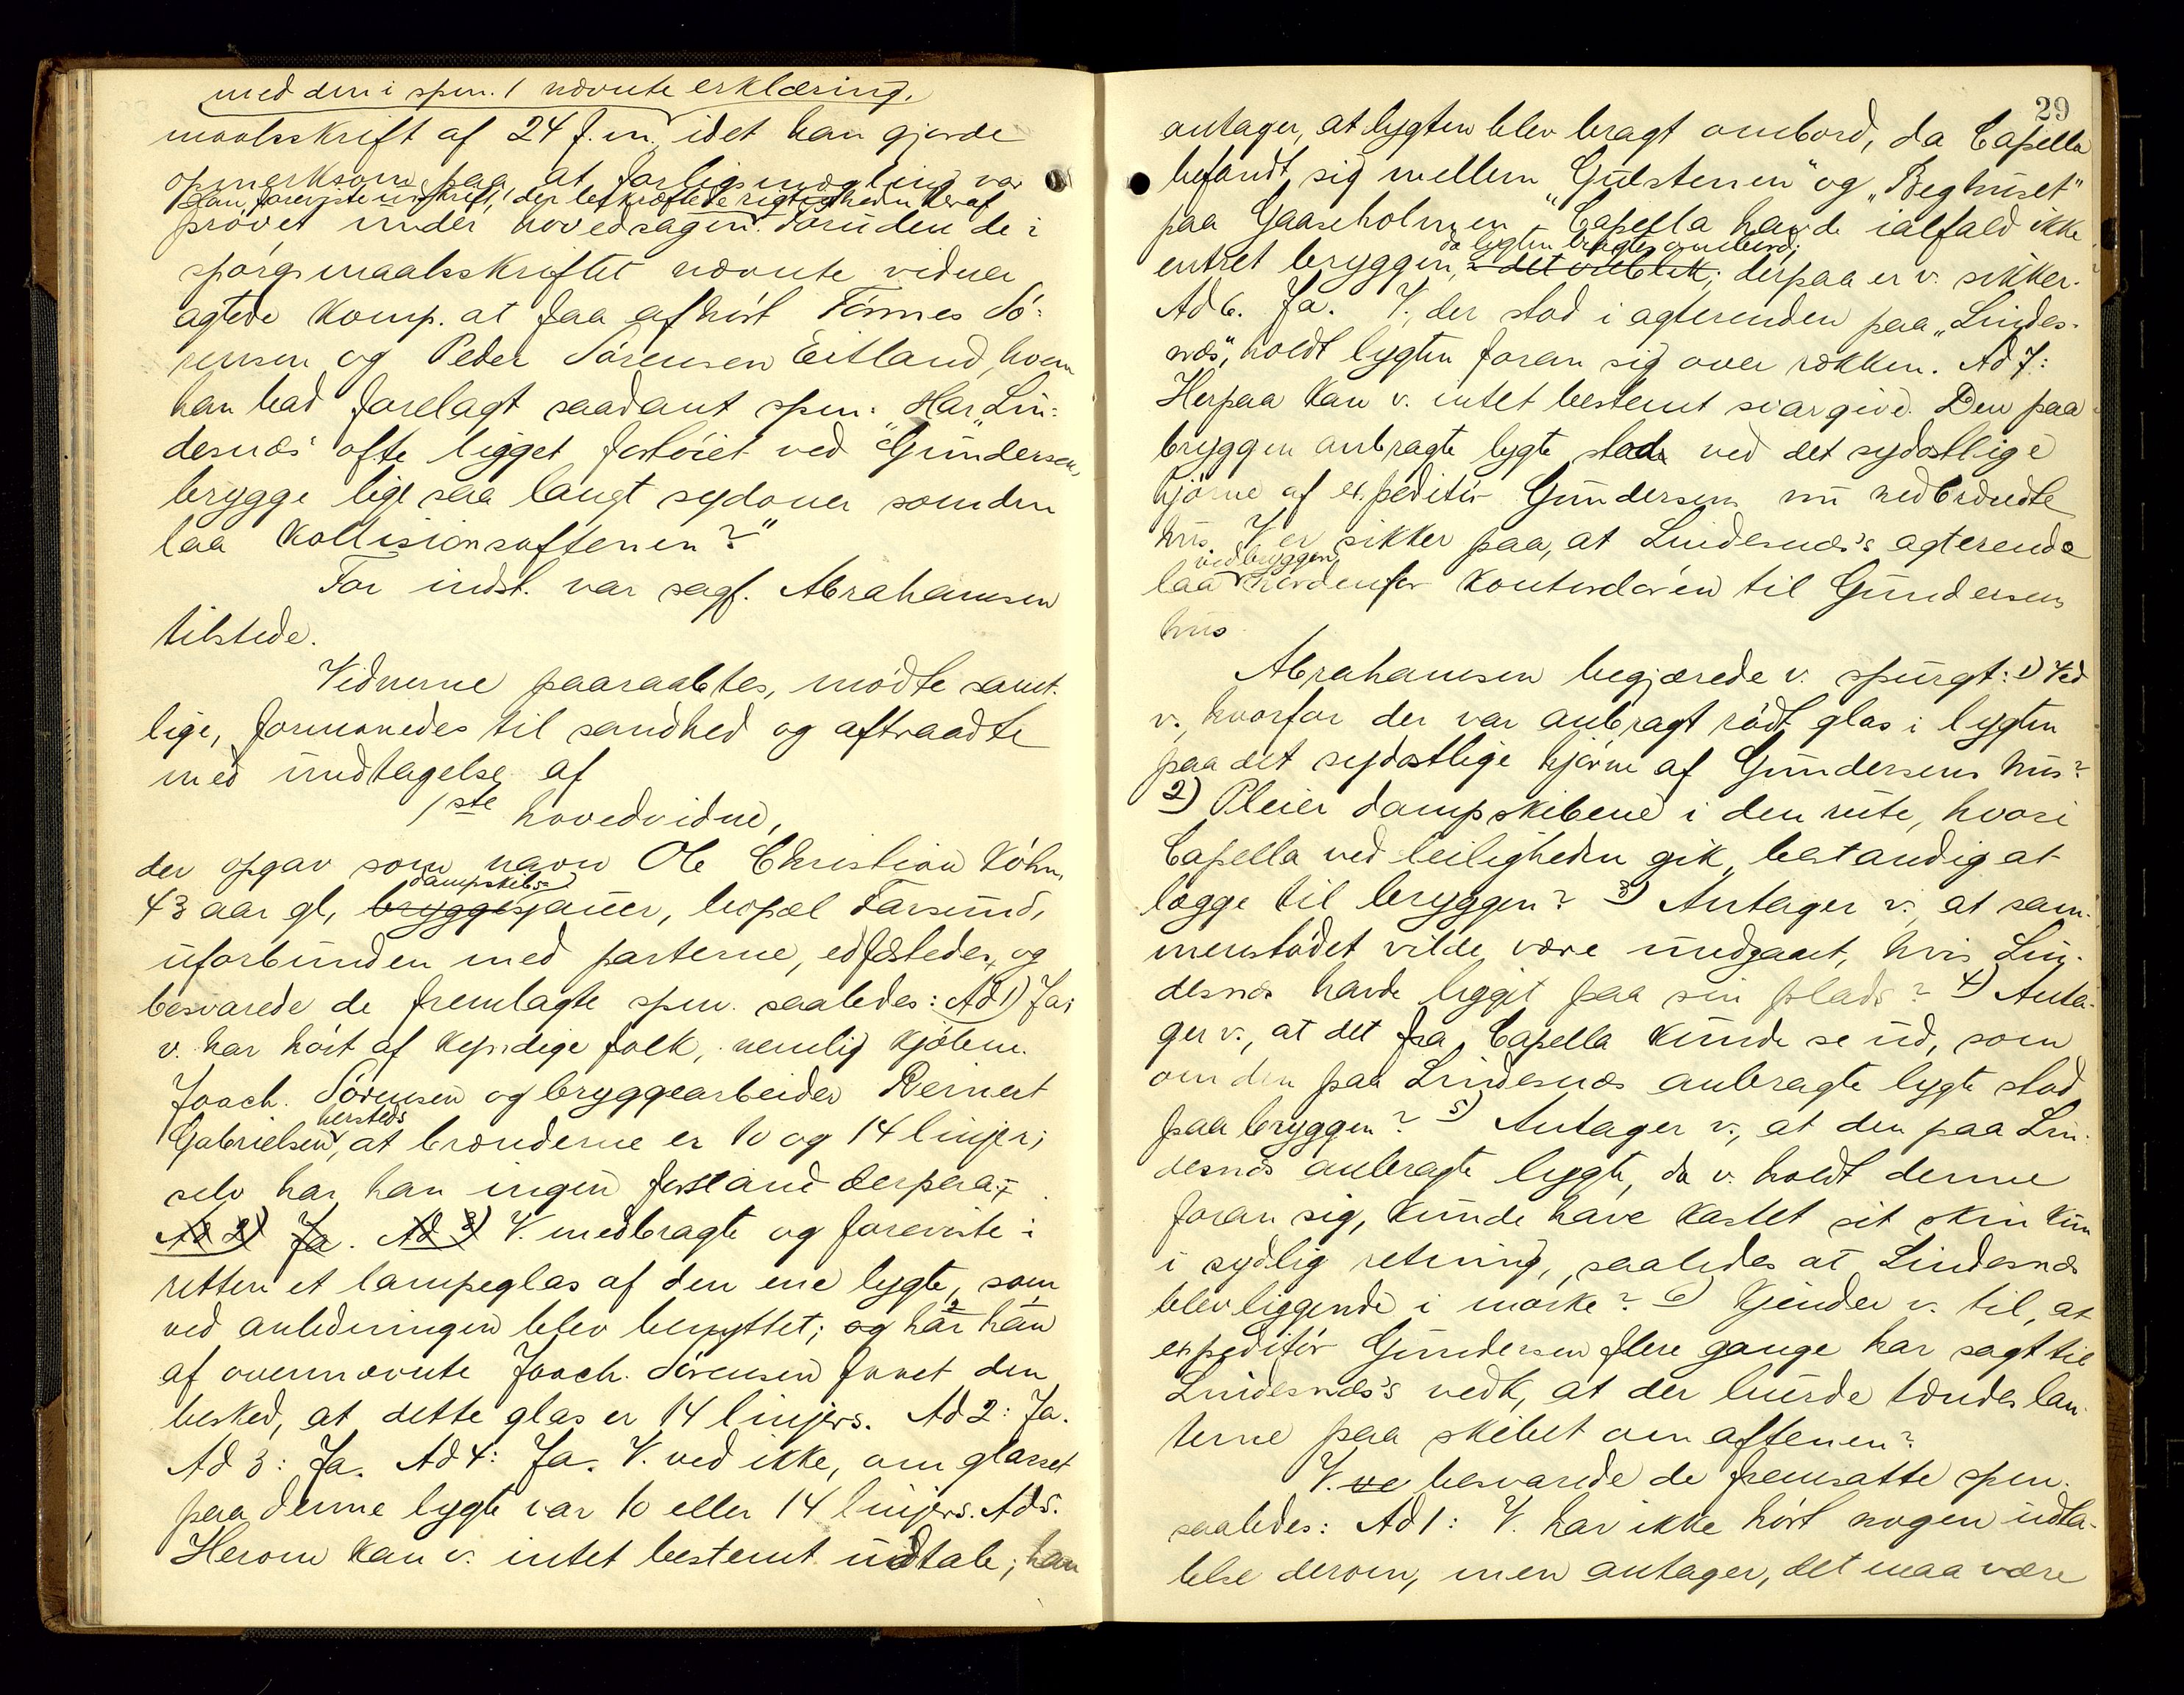 med den i spm. 1 nævnte erklæring.
maalsskrift af 24 f. m., idet han gjorde
opmerksom paa, at forligsmægling var
Han foreviste udskrift, der bekræftede rigtigheden heraf
prövet under hovedsagen. Foruden de i
spörgsmaalsskriftet nævnte vidner
agtede komp. at faa afhört Tönnes Sö-
rensen og Peder Sörensen Eitland, hvem
han bad forelagt saadant spm: Har „Lin-
desnæs" ofte ligget fortöiet ved "Gundersens
brygge lige saa langt sydover som den
laa kollisionsaftenen?"
For indst. var sagf. Abrahamsen
tilstede.
Vidnerne paaraabtes, mödte samt-
lige, formanedes til sandhed og aftraadte
med undtagelse af
1ste hovedvidne,
der opgav som navn Ole Christian Köhn,
dampskibs-
43 aar gl, bryggesjauer, bopæl Farsund,
uforbunden med parterne, edfæstedes, og
besvarede de fremlagte spm. saaledes: Ad 1) Ja;
v. har hört af kyndige folk, nemlig kjöbm.
Joach. Sörensen og bryggearbeider Reinert
hersteds
Gabrielsen, at brænderne er 10 og 14 linjer;
selv har han ingen forstand derpaa.
Ad 2) Ja. Ad 3) V. medbragte og foreviste i
retten et lampeglas af den ene lygte, som
ved anledningen blev benyttet; og har han
af ovennævnte Joach. Sörensen faaet den
besked, at dette glas er 14 linjers. Ad 2: Ja.
Ad 3: Ja. Ad 4: Ja. V. ved ikke, om glasset
paa denne lygte var 10 eller 14 linjers. Ad 5.
Herom kan v. intet bestemt udtale; han
29
antager, at lygten blev bragt ombord, da Capella
befandt sig mellem "Gulstenen" og „Beghuset"
paa Gaaseholmen. "Capella havde ialfald ikke
da lygten bragtes ombord;
entret bryggen, i det öieblik; derpaa er v. sikker.
Ad 6. Ja. V., der stod i agterenden paa „Lindes-
næs", holdt lygten foran sig over rækken. Ad 7:
Herpaa kan v. intet bestemt svar give. Den paa
bryggen anbragte lygte stod ved det sydöstlige
hjörne af expeditör Gundersens nu nedbrændte
hus. V. er sikker paa, at Lindesnæs's agterende
ved bryggen
laa nordenfor kontordören til Gundersens
hus.
Abrahamsen begjærede v. spurgt: 1) Ved
v., hvorfor der var anbragt rödt glas i lygten
paa det sydöstlige hjörne af Gundersens hus?
2) Pleier dampskibene i den rute, hvori
Capella ved leiligheden gik, bestandig at
lægge til bryggen? 3) Antager v., at sam-
menstödet vilde være undgaaet, hvis Lin-
desnæs havde ligget paa sin plads? 4) Anta-
ger v., at det fra Capella kunde se ud, som
om den paa Lindesnæs anbragte lygte stod
paa bryggen? 5) Antager v., at den paa Lin-
desnæs anbragte lygte, da v. holdt denne
foran sig, kunde have kastet sit skin kun
i sydlig retning, saaledes at Lindesnæs
blev liggende i mörke? 6) Kjender v. til, at
expeditör Gundersen flere gange har sagt til
Lindesnæs's vedk, at der burde tændes lan-
terne paa skibet om aftenen?
V. ve besvarede de fremsatte spm.
saaledes: Ad 1: V. har ikke hört nogen udta-
lelse derom, men antager, det maa være